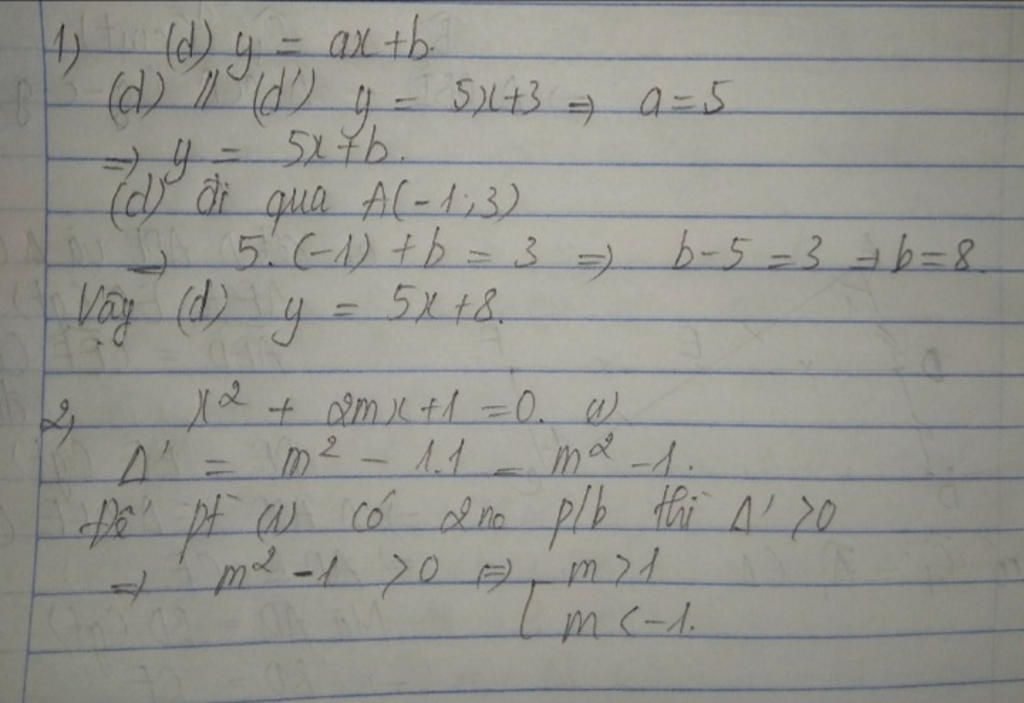 1) (d) y = ax + b.
(d) // (d') y = 5x+3 => a = 5
=> y = 5x + b.
(d) đi qua A(-1;3)
=> 5.(-1) + b = 3 => b-5 = 3 => b = 8.
Vậy (d) y = 5x + 8.
2) x² + 2mx + 1 = 0. (1)
Δ' = m² - 1.1 = m² - 1.
Để pt (1) có 2no p/b thì Δ' > 0
=> m² - 1 > 0 <=> [ m > 1
m < -1.